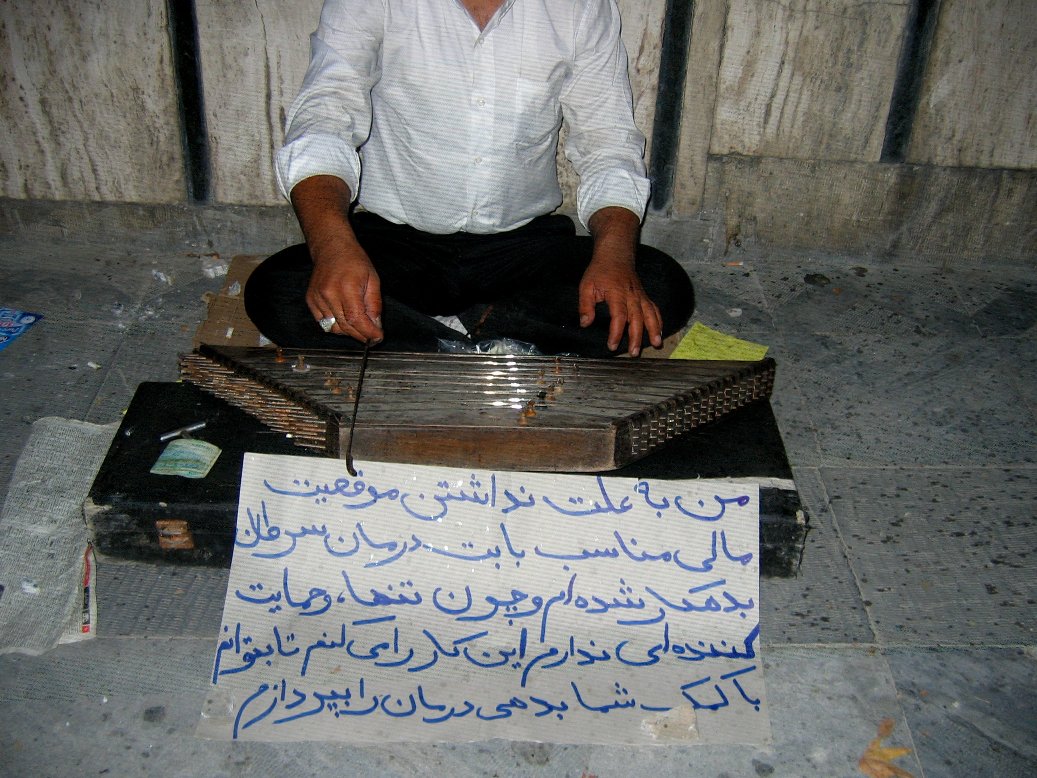 من به علت نداشتن موقعیت
مالی مناسب بابت درمان سرطان
بدهکار شده‌ام و چون تنها، و حمایت
کننده‌ای ندارم این کار را می کنم تا بتوانم
با کمک شما بدهی درمان را بپردازم